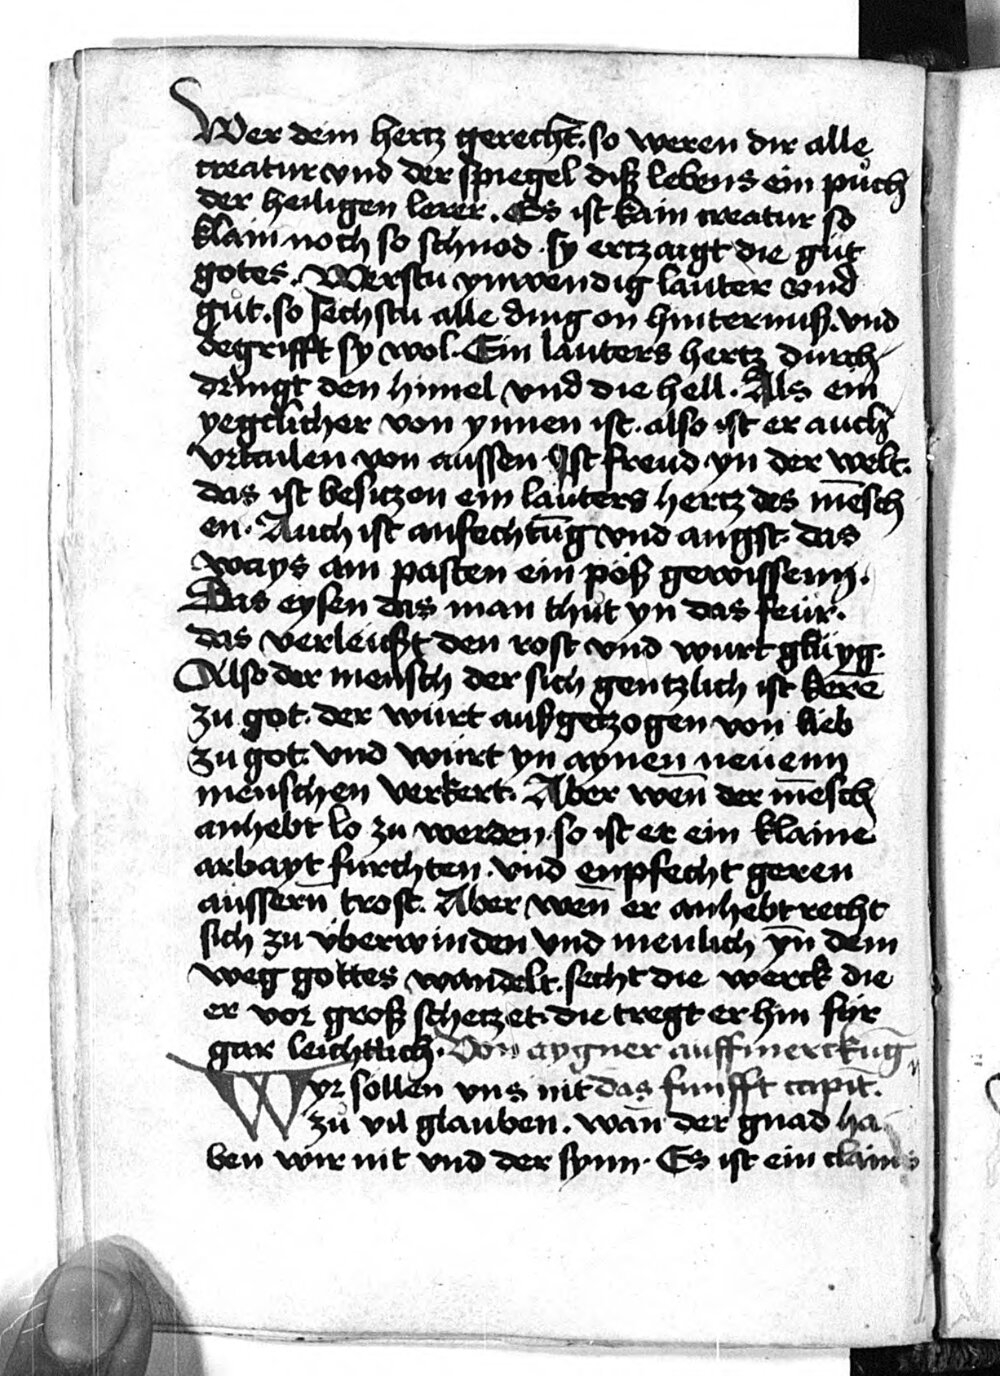 Wer dein hertz gerecht. so weren dir alle
creatur vnd der spiegel diß lebens ein půch
der heiligen lerer. Es ist kain creatur so
klain noch so schnod. sy ertzaigt die gůt
gotes. Werstu ynwendig lauter vnd
gůt. so sechstu alle ding on hinternuß. vnd
begrifft sy wol. Ein lauters hertz durch
dringt den himel vnd die hell. Als ein
yegclicher von ynnen ist. also ist er auch
vrtailen von aussen Ist freud yn der welt.
das ist besitzen ein lauters hertz des mēsch
en. Auch ist anfechtūg vnd angst. das
ways am pasten ein pöß gewissenn.
Das eysen das man thůt yn das feür.
das verleüßt den rost vnd wurt glüyg.
Also der mensch der sich gentzlich ist kerē
zu got. der würt außgetzogen von lieb
zu got. vnd würt yn aynen neüenn
menschen verkert. Aber wen̄ der mēsch
anhebt lo zu werden. so ist er ein klaine
arbayt furchten. vnd enpfecht geren
aussern̄ trost. Aber wen̄ er anhebt recht
sich zu überwinden vnd menlich yn̄ dem
weg gottes wandelt. secht die werck die
er vor groß schetzet. die tregt er hin für
gar leichtlich. Von aygner auffmerckūg
Wyr sollen vns nit das funfft capit̄.
zů vil glauben. wan̄ der gnad ha
ben wir nit vnd der synn. Es ist ein clains